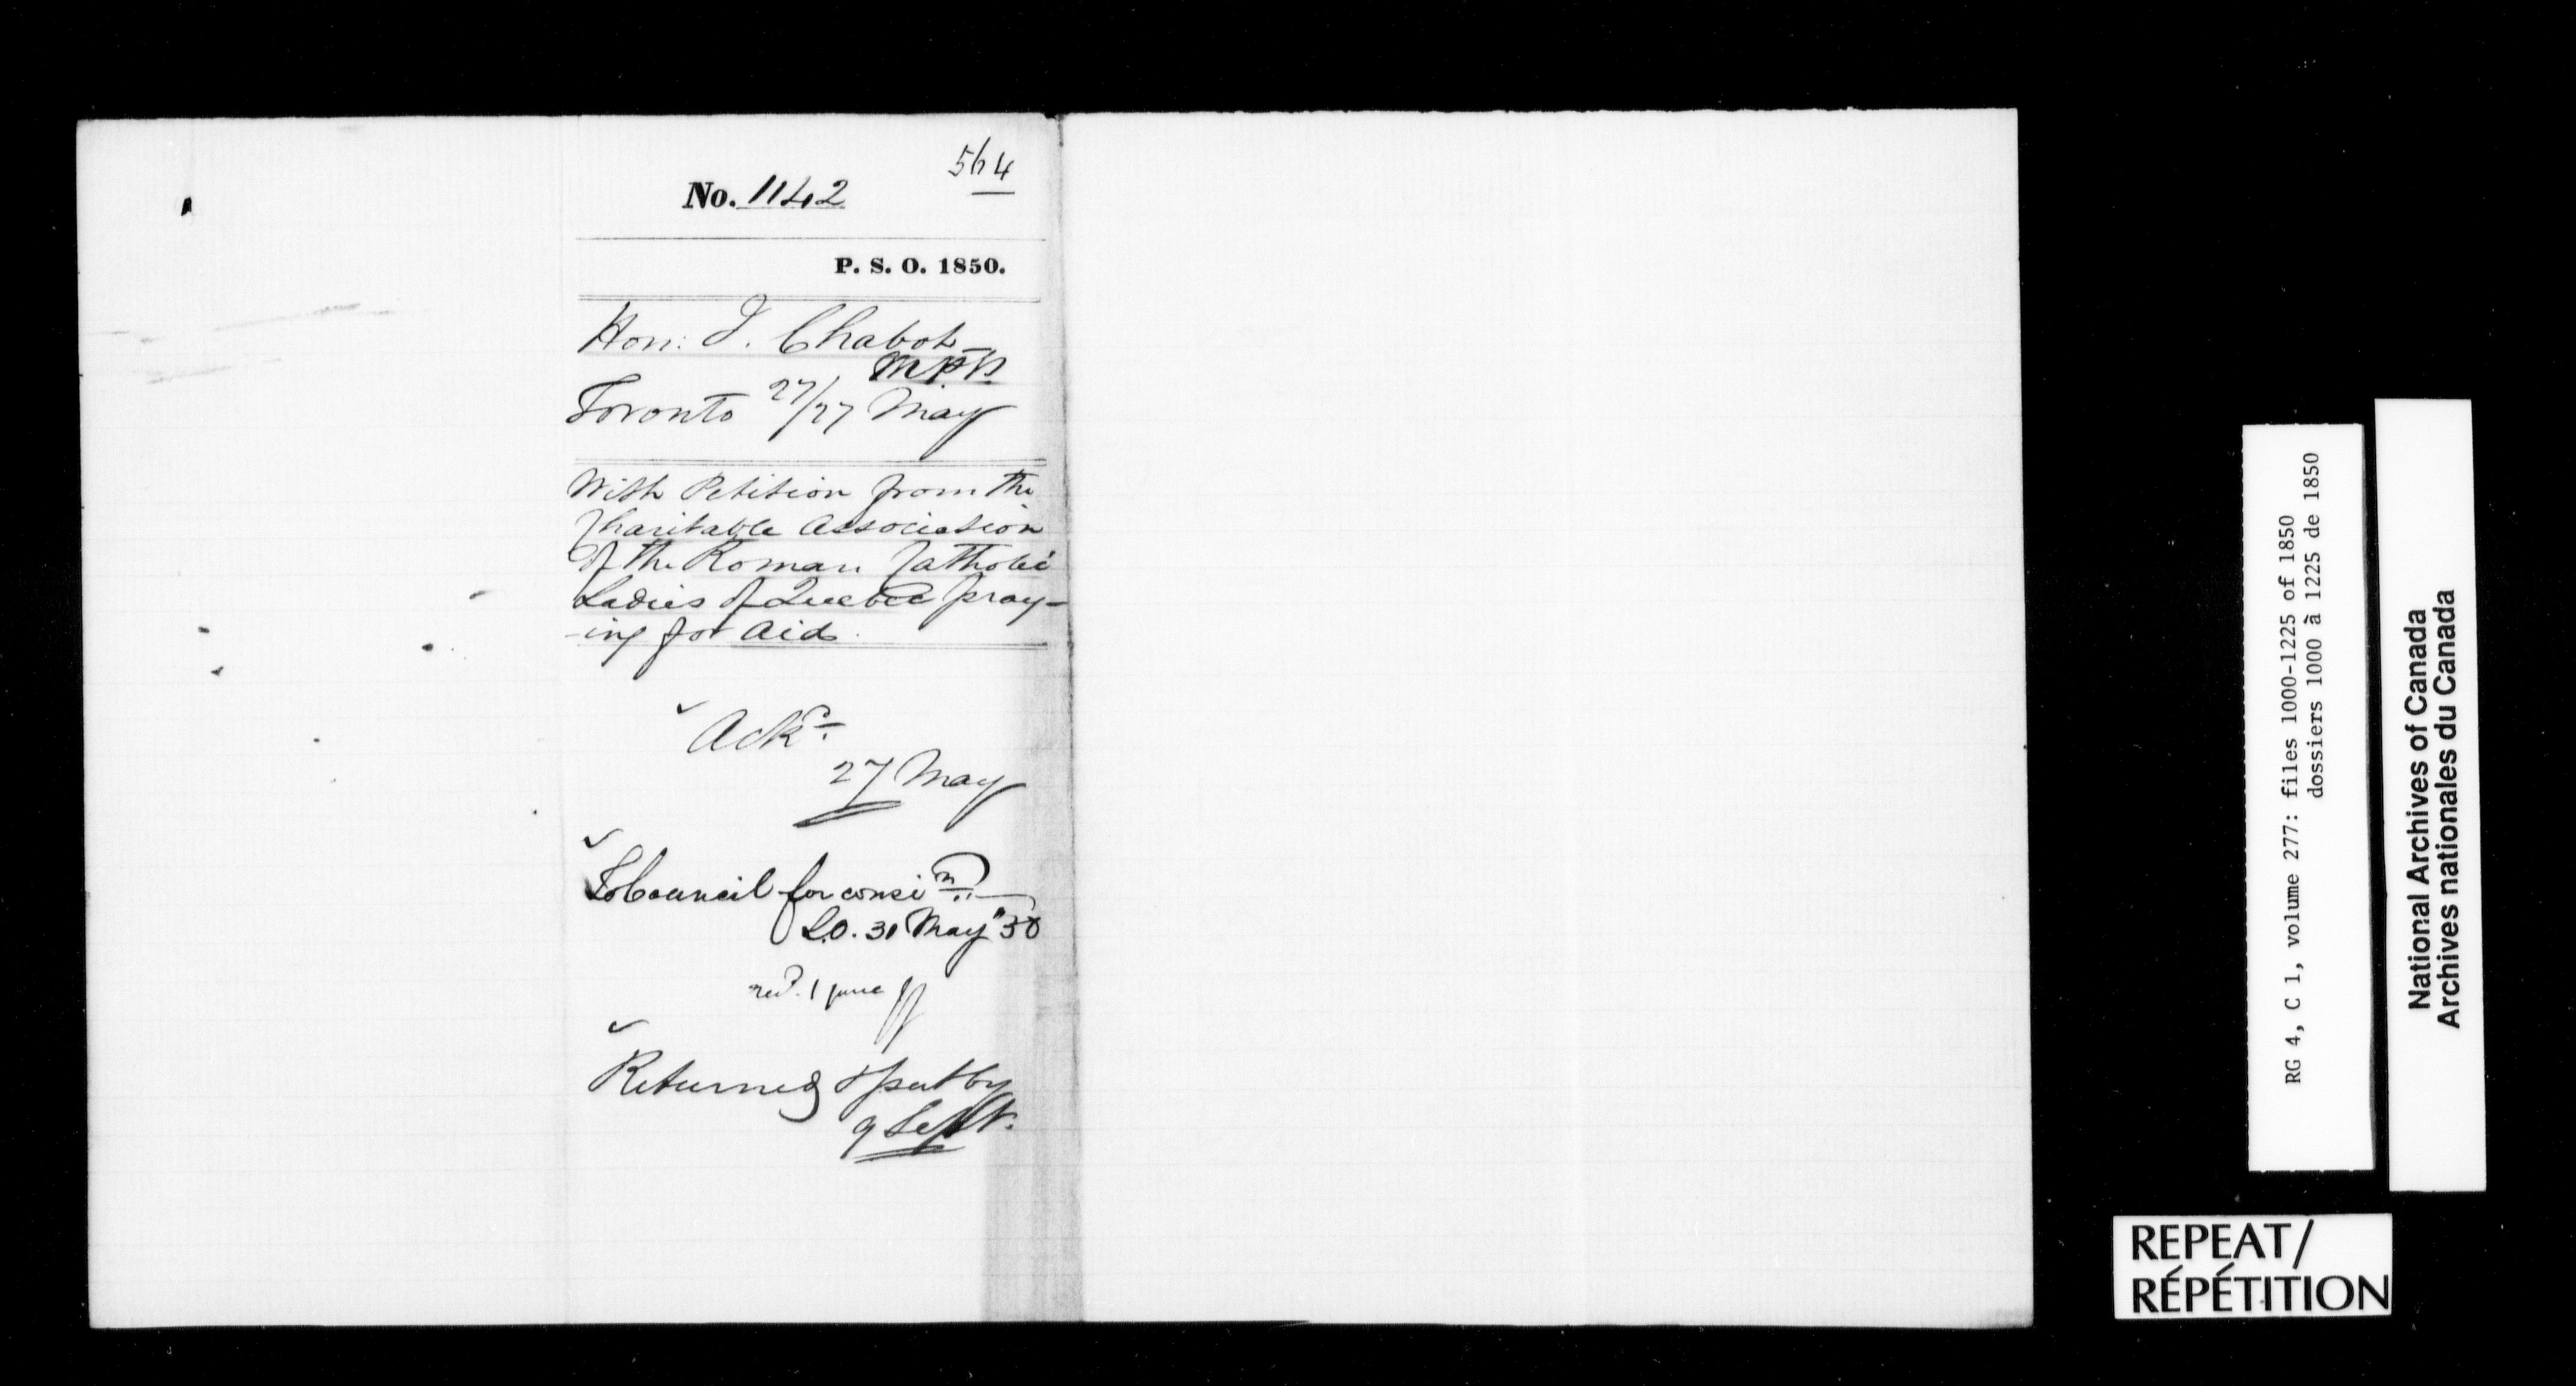 564
No. 1142
P. S. O. 1850.
Hon: J. Chabot
M.P.P.
Toronto 27/27 May
With Petition from the
Charitable Association
of the Roman Catholic
Ladies of Quebec pray-
-ing for Aid.
Ackd.
27 May
To Council for consin.
S.O. 31 May "50
recd. 1 June
Returned & put by
9 Sept.
RG 4, C 1, volume 277: files 1000-1225 of 1850
dossiers 1000 à 1225 de 1850
National Archives of Canada
Archives nationales du Canada
REPEAT/
RÉPÉTITION